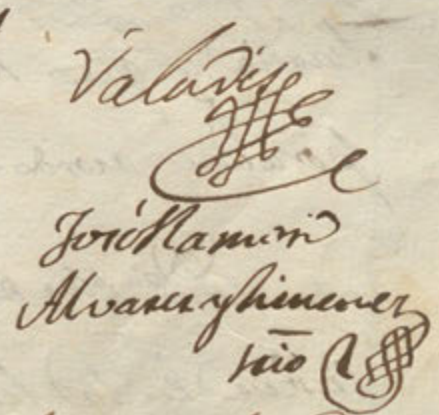 Valadis
José Ramirez
Alvarez y Ximenez
srio